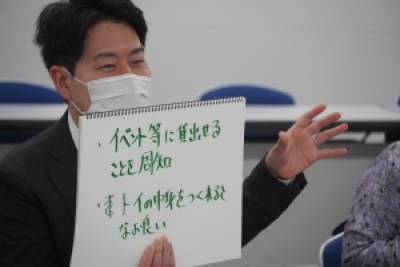 ・イベント等に貸出せる
ことを周知
・トイの中身をつくれると
なお良い